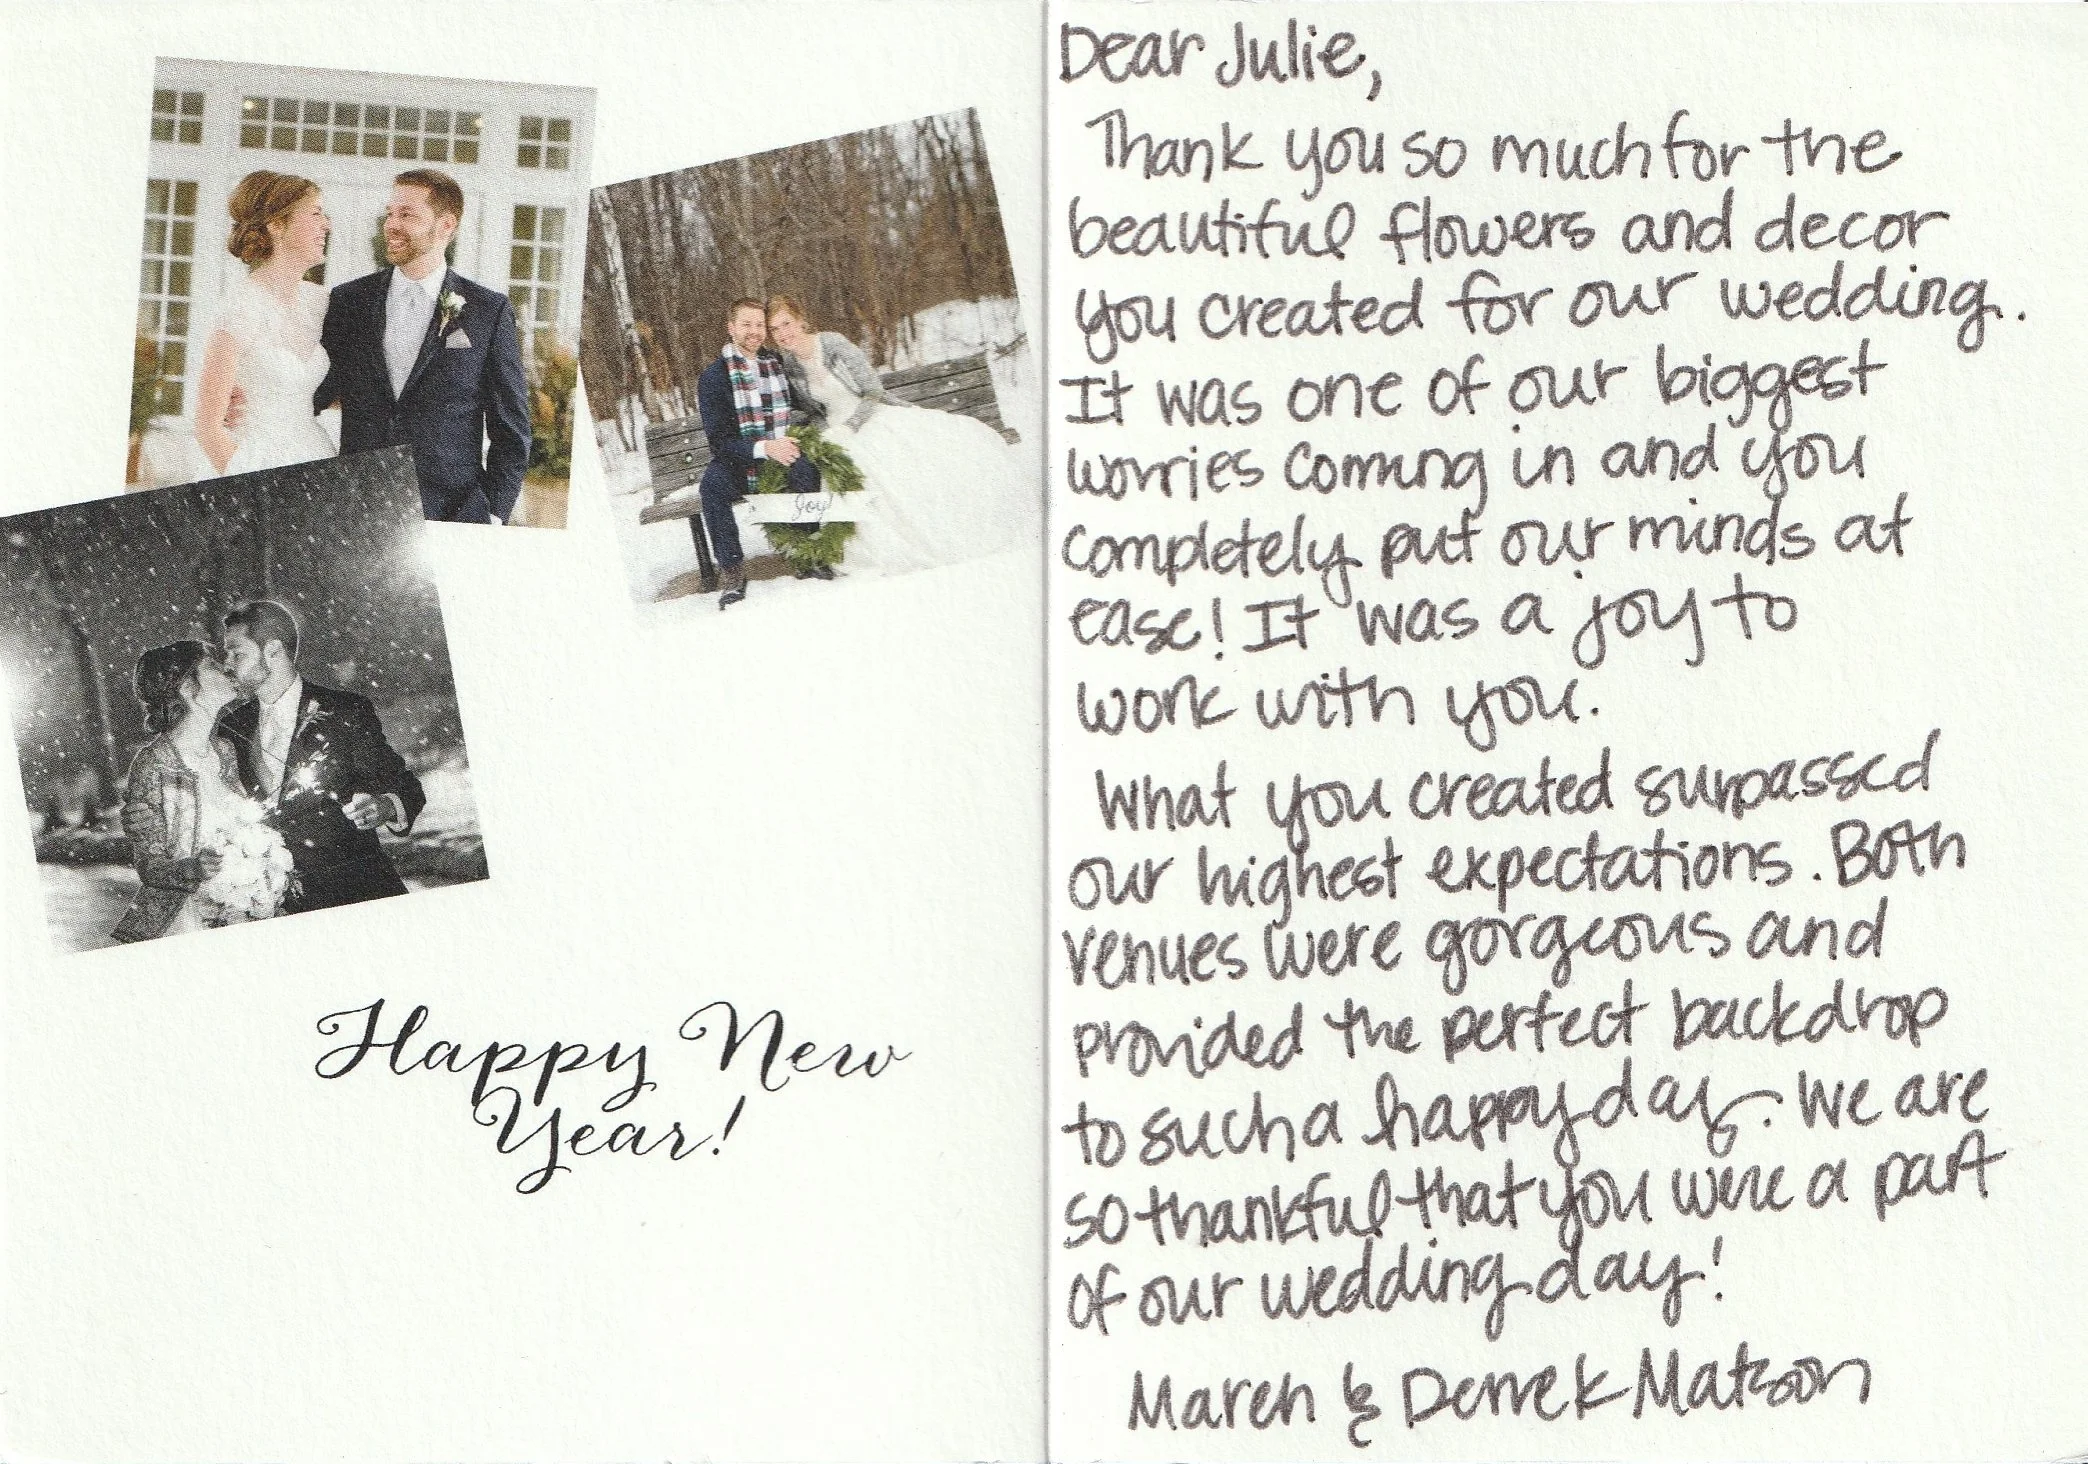 Joy!
Happy New
Year!
Dear Julie,
Thank you so much for the
beautiful flowers and decor
you created for our wedding.
It was one of our biggest
worries coming in and you
completely put our minds at
ease! It was a joy to
work with you.
What you created surpassed
our highest expectations. Both
venues were gorgeous and
provided the perfect backdrop
to such a happy day. We are
so thankful that you were a part
of our wedding day!
Maren & Derrek Matson